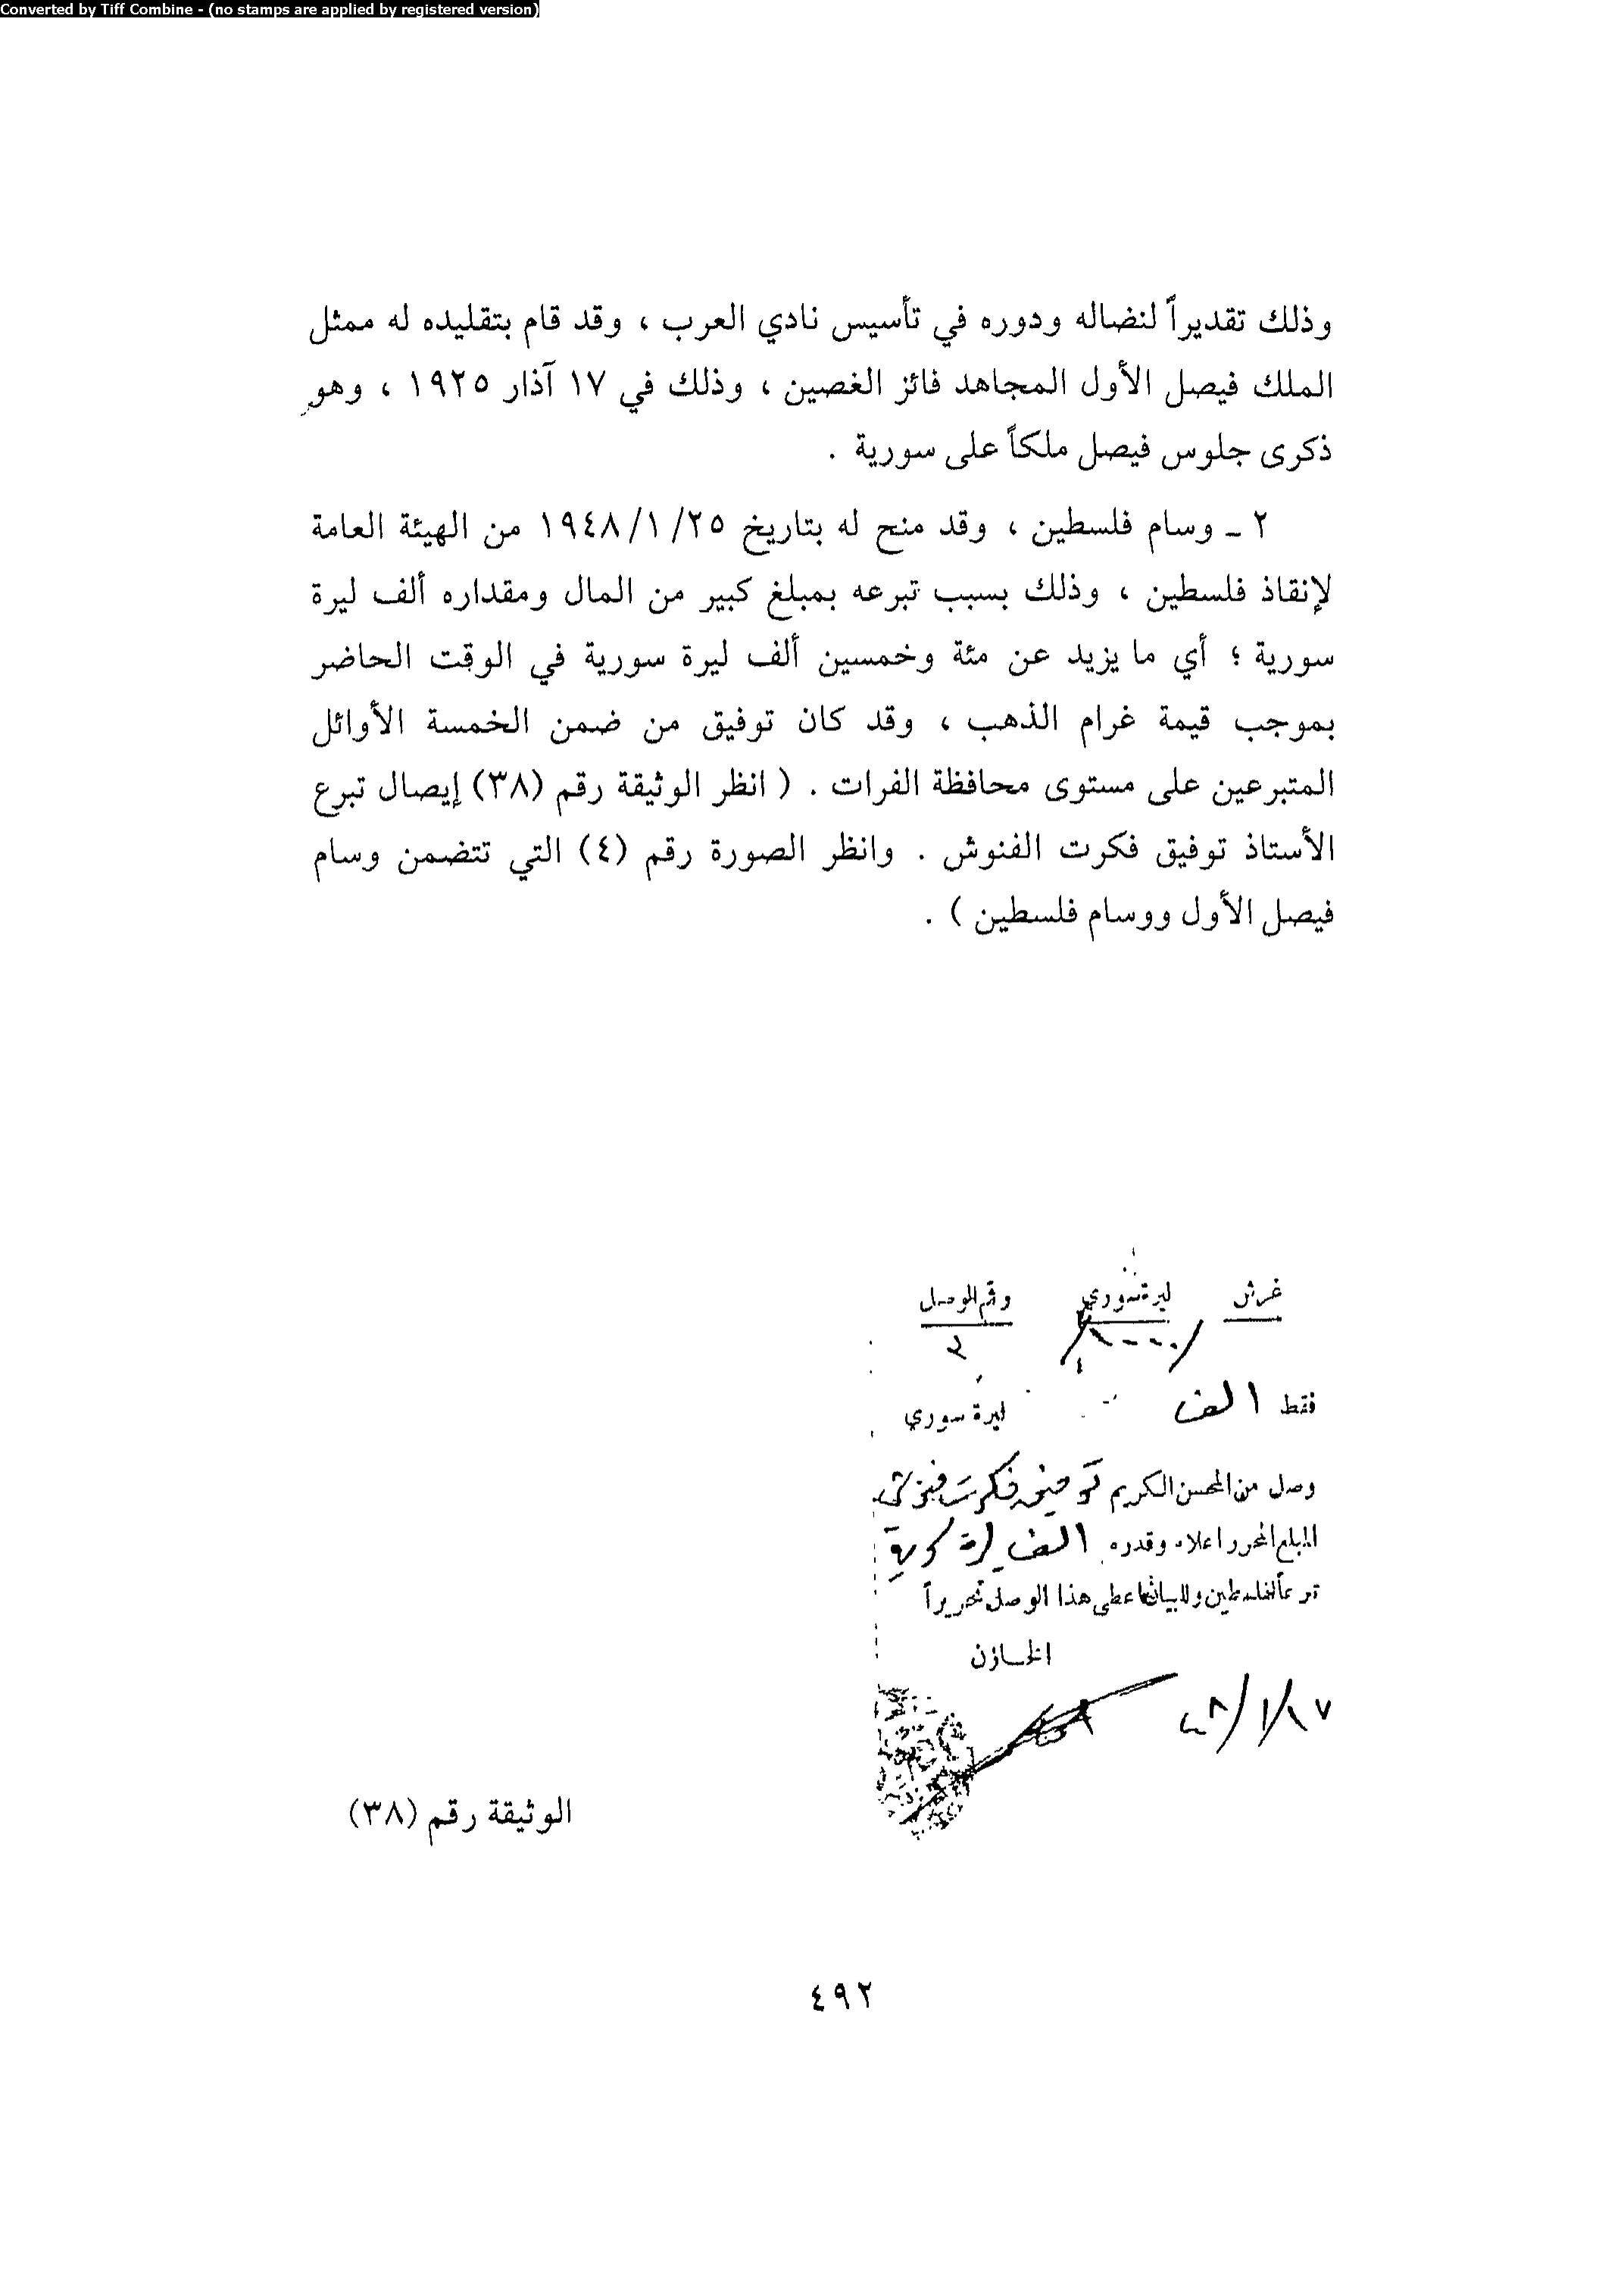 Converted by Tiff Combine - (no stamps are applied by registered version)
وذلك تقديراً لنضاله ودوره في تأسيس نادي العرب ، وقد قام بتقليده له ممثل
الملك فيصل الأول المجاهد فائز الغصين ، وذلك في ١٧ آذار ١٩٢٥ ، وهو
ذكرى جلوس فيصل ملكاً على سورية .
٢ ـ وسام فلسطين ، وقد منح له بتاريخ ١٩٤٨/١/٢٥ من الهيئة العامة
لإنقاذ فلسطين ، وذلك بسبب تبرعه بمبلغ كبير من المال ومقداره ألف ليرة
سورية ؛ أي ما يزيد عن مئة وخمسين ألف ليرة سورية في الوقت الحاضر
بموجب قيمة غرام الذهب ، وقد كان توفيق من ضمن الخمسة الأوائل
المتبرعين على مستوى محافظة الفرات . ( انظر الوثيقة رقم (٣٨) إيصال تبرع
الأستاذ توفيق فكرت الفنوش . وانظر الصورة رقم (٤) التي تتضمن وسام
فيصل الأول ووسام فلسطين ) .
غرش ليرة سوري رقم الوصل
٢
فقط الف ليرة سوري
وصل من المحسن الكريم توفيق فكرت فنوش
المبلغ المحرر اعلاه وقدره الف ليرة سورية
تبرعاً لفلسطين وللبيان اعطي هذا الوصل تحريراً
الخازن
الوثيقة رقم (٣٨)
٤٩٢